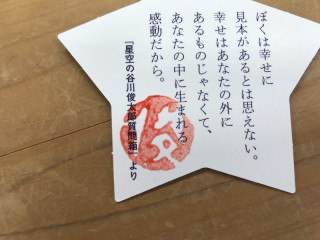 ぼくは幸せに
見本があるとは思えない。
幸せはあなたの外に
あるものじゃなくて、
あなたの中に生まれる
感動だから。
『星空の谷川俊太郎質問箱』より